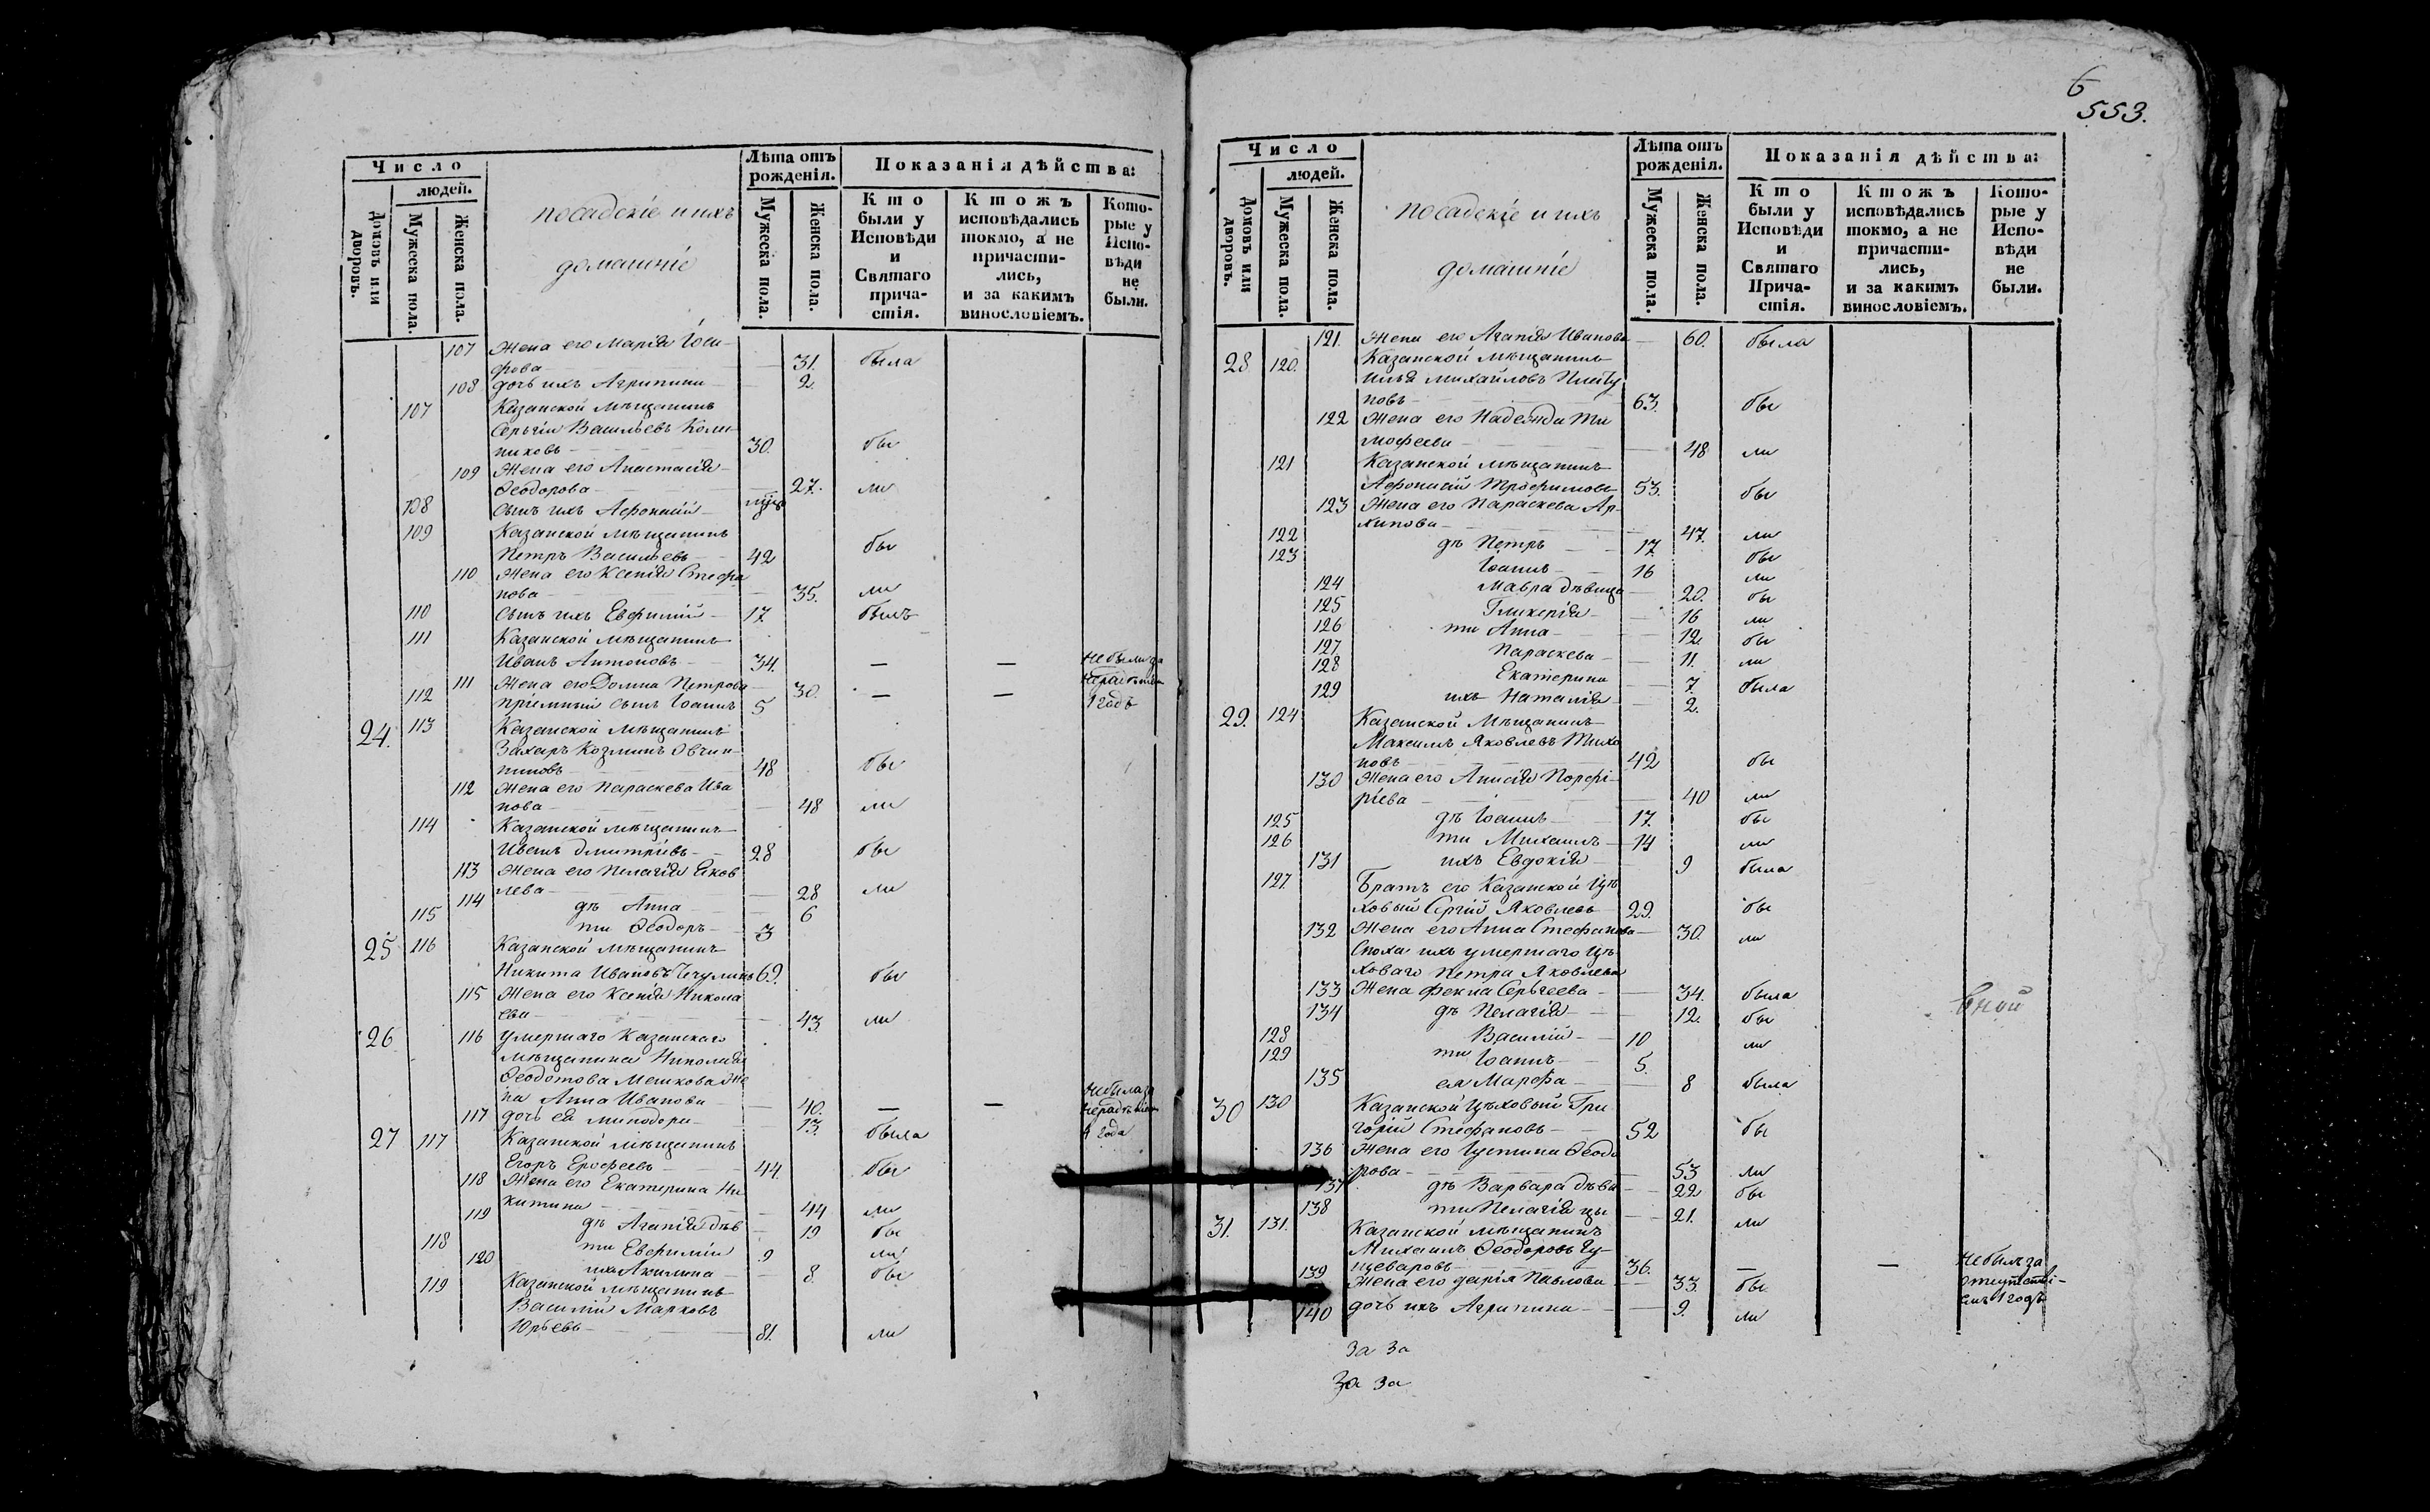 Число
людей.
Домовъ или дворовъ.
Мужеска пола.
Женска пола.
посадскіе и ихъ
домашніе
Лѣта отъ
рожденія.
Мужеска пола.
Женска пола.
Показанія дѣйства:
Кто
были у
Исповѣди
и
Святаго
прича-
стія.
Ктожъ
исповѣдались
токмо, а не
причасти-
лись,
и за какимъ
винословіемъ.
Кото-
рые у
Испо-
вѣди
не
были.
107 Жена его Марія Іоси-
фова 31. была
108 дочь ихъ Агрипина 2.
107 Казанской мѣщанинъ
Сергіи Васильевъ
30. бы
109 Жена его Анастасія
Ѳеодорова 27. ли
108 сынъ ихъ Афонасій
109 Казанской мѣщанинъ
Петръ Васильевъ 42 бы
110 Жена его Ксенія Стефа
нова 35. ли
110 Сынъ ихъ Евфимій 17 былъ
111 Казанской мѣщанинъ
Иванъ Антоновъ 34. — — не были за
111 Жена его Домна Петрова 30. — — нерадѣніем
112 пріемный сынъ Іоаннъ 5 1 годъ
24. 113 Казанской мѣщанинъ
Захаръ Козминъ Овчин-
никовъ 48 бы
112 Жена его Параскева Ива
нова 48 ли
114 Казанской мѣщанинъ
Иванъ Дмитріевъ 28 бы
113 Жена его Пелагія Яков
лева 28 ли
114 дѣ Анна 6
115 ти Ѳеодоръ 3
25 116 Казанской мѣщанинъ
Никита Ивановъ Чекулинъ 69. бы
115 Жена его Ксенія Никола
ева 43. ли
26 116 умершаго Казанскаго
мѣщанина Николая
Ѳеодотова Мешкова же
на Анна Иванова 40. — — не была за нерадѣніем
117 дочь ея Минодора 13. была 4 года
27 117 Казанской мѣщанинъ
Егоръ Ерофеевъ 44. бы
118 Жена его Екатерина Ни
китина 44 ли
119 дѣ Агапія дѣв 19 бы
118 ти Евфимій 9 ли
120 ихъ Акилина 8. бы
119 Казанской мѣщанинъ
Василій Марковъ
Юрьевъ 81. ли
6
553.
Число
людей.
Домовъ или дворовъ.
Мужеска пола.
Женска пола.
посадскіе и ихъ
домашніе
Лѣта отъ
рожденія.
Мужеска пола.
Женска пола.
Показанія дѣйства:
Кто
были у
Исповѣди
и
Святаго
Прича-
стія.
Ктожъ
исповѣдались
токмо, а не
причасти-
лись,
и за какимъ
винословіемъ.
Кото-
рые у
Испо-
вѣди
не
были.
121. Жена его Агапія Иванова 60. была
28 120. Казанской мѣщанинъ
Илья Михайловъ Плату
новъ 63. бы
122 Жена его Надежда Ти
мофеева 48 ли
121 Казанской мѣщанинъ
Афонасій Трофимовъ 53. бы
123 Жена его Параскева Ар-
хипова 47. ли
122 дѣ Петръ 17. бы
123 Іоаннъ 16 ли
124 Мавра дѣвица 20. бы
125 Гликерія 16 ли
126 ти Анна 12. бы
127 Параскева 11. ли
128 Екатерина 7. была
129 ихъ Наталія 2.
29. 124 Казанской Мѣщанинъ
Максимъ Яковлевъ Тихо
новъ 42 бы
130 Жена его Анисія Порфи-
ріева 40 ли
125 дѣ Іоаннъ 17. бы
126 ти Михаилъ 14 ли
131 ихъ Евдокія 9 была
127. Братъ его Казанской Цѣ
ховый Сергій Яковлевъ 29. бы
132 Жена его Анна Стефанова 30. ли
Сноха ихъ умершаго Цѣ
ховаго Петра Яковлева
133 Жена Фекла Сергеева 34. была
134 дѣ Пелагія 12. бы
128 Василій 10 ли
129 ти Іоаннъ 5.
135 ея Марѳа 8 была
30 130 Казанской Цѣховый Гри
горій Стефановъ 52 бы
136 Жена его Іустина Ѳеодо
рова 53 ли
137 дѣ Варвара дѣви 22 бы
138 ти Пелагія цы 21. ли
31. 131. Казанской мѣщанинъ
Михаилъ Ѳеодоровъ
36. — — не былъ за
139 Жена его Дарія Павлова 33. бы отлучкі-
140 дочь ихъ Агрипина 9. ли 1 годъ
за за
за за